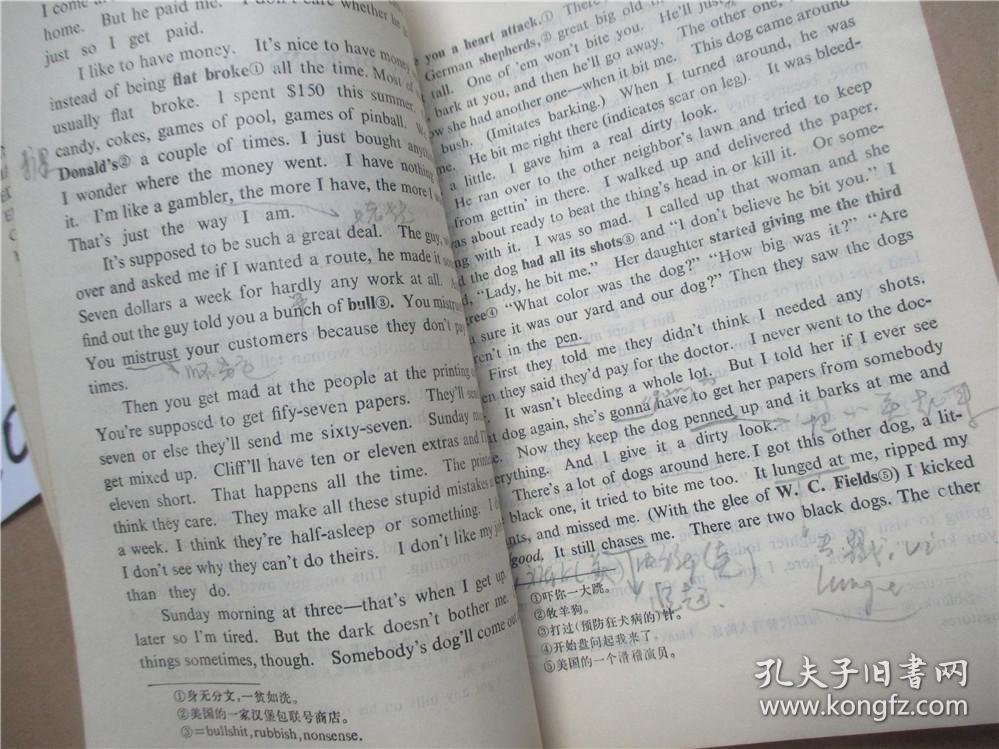 I come
home. But he paid me. I don't care whether he
just so I get paid.
I like to have money. It's nice to have money
instead of being flat broke① all the time. Most of
usually flat broke. I spent $150 this summer.
candy, cokes, games of pool, games of pinball.
Donald's② a couple of times. I just bought
I wonder where the money went. I have nothing
it. I'm like a gambler, the more I have, the more I
That's just the way I am.
It's supposed to be such a great deal. The guy,
over and asked me if I wanted a route, he made it
Seven dollars a week for hardly any work at all.
find out the guy told you a bunch of bull③. You mistrust
You mistrust your customers because they don't pay
times.
Then you get mad at the people at the printing
You're supposed to get fify-seven papers. They'll send
seven or else they'll send me sixty-seven. Sunday
get mixed up. Cliff'll have ten or eleven extras and I'll
eleven short. That happens all the time. The
think they care. They make all these stupid mistakes
a week. I think they're half-asleep or something. I
I don't see why they can't do theirs. I don't like my
than they do.
Sunday morning at three—that's when I get up.
later so I'm tired. But the dark doesn't bother me.
things sometimes, though. Somebody's dog'll come
①身无分文，一贫如洗。
②美国的一家汉堡包联号商店。
③=bullshit, rubbish, nonsense.
you a heart attack.① There
German shepherds,② great big old
tall. One of 'em won't bite you. He'll just
bark at you, and then he'll go away. The other one,
she had another one—when it bit me. This dog came around
bush. (Imitates barking.) When I turned around, he was
me. He bit me right there (indicates scar on leg). It was bleed-
a little. I gave him a real dirty look.
He ran over to the other neighbor's lawn and tried to keep
from gettin' in there. I walked up and delivered the paper.
was about ready to beat the thing's head in or kill it. Or some-
with it. I was so mad. I called up that woman and she
the dog had all its shots③ and "I don't believe he bit you." I
"Lady, he bit me." Her daughter started giving me the third
④ "What color was the dog?" "How big was it?" "Are
sure it was our yard and our dog?" Then they saw the dogs
in the pen.
First they told me they didn't think I needed any shots.
they said they'd pay for the doctor. I never went to the doc-
It wasn't bleeding a whole lot. But I told her if I ever see
dog again, she's gonna have to get her papers from somebody
Now they keep the dog penned up and it barks at me and
And I give it a dirty look.
There's a lot of dogs around here. I got this other dog, a lit-
black one, it tried to bite me too. It lunged at me, ripped my
and missed me. (With the glee of W. C. Fields⑤) I kicked
good. It still chases me. There are two black dogs. The other
lunge
①吓你一大跳。
②牧羊狗。
③打过(预防狂犬病的)针。
④开始盘问起我来了。
⑤美国的一个滑稽演员。
孔夫子旧书网
www.kongfz.com